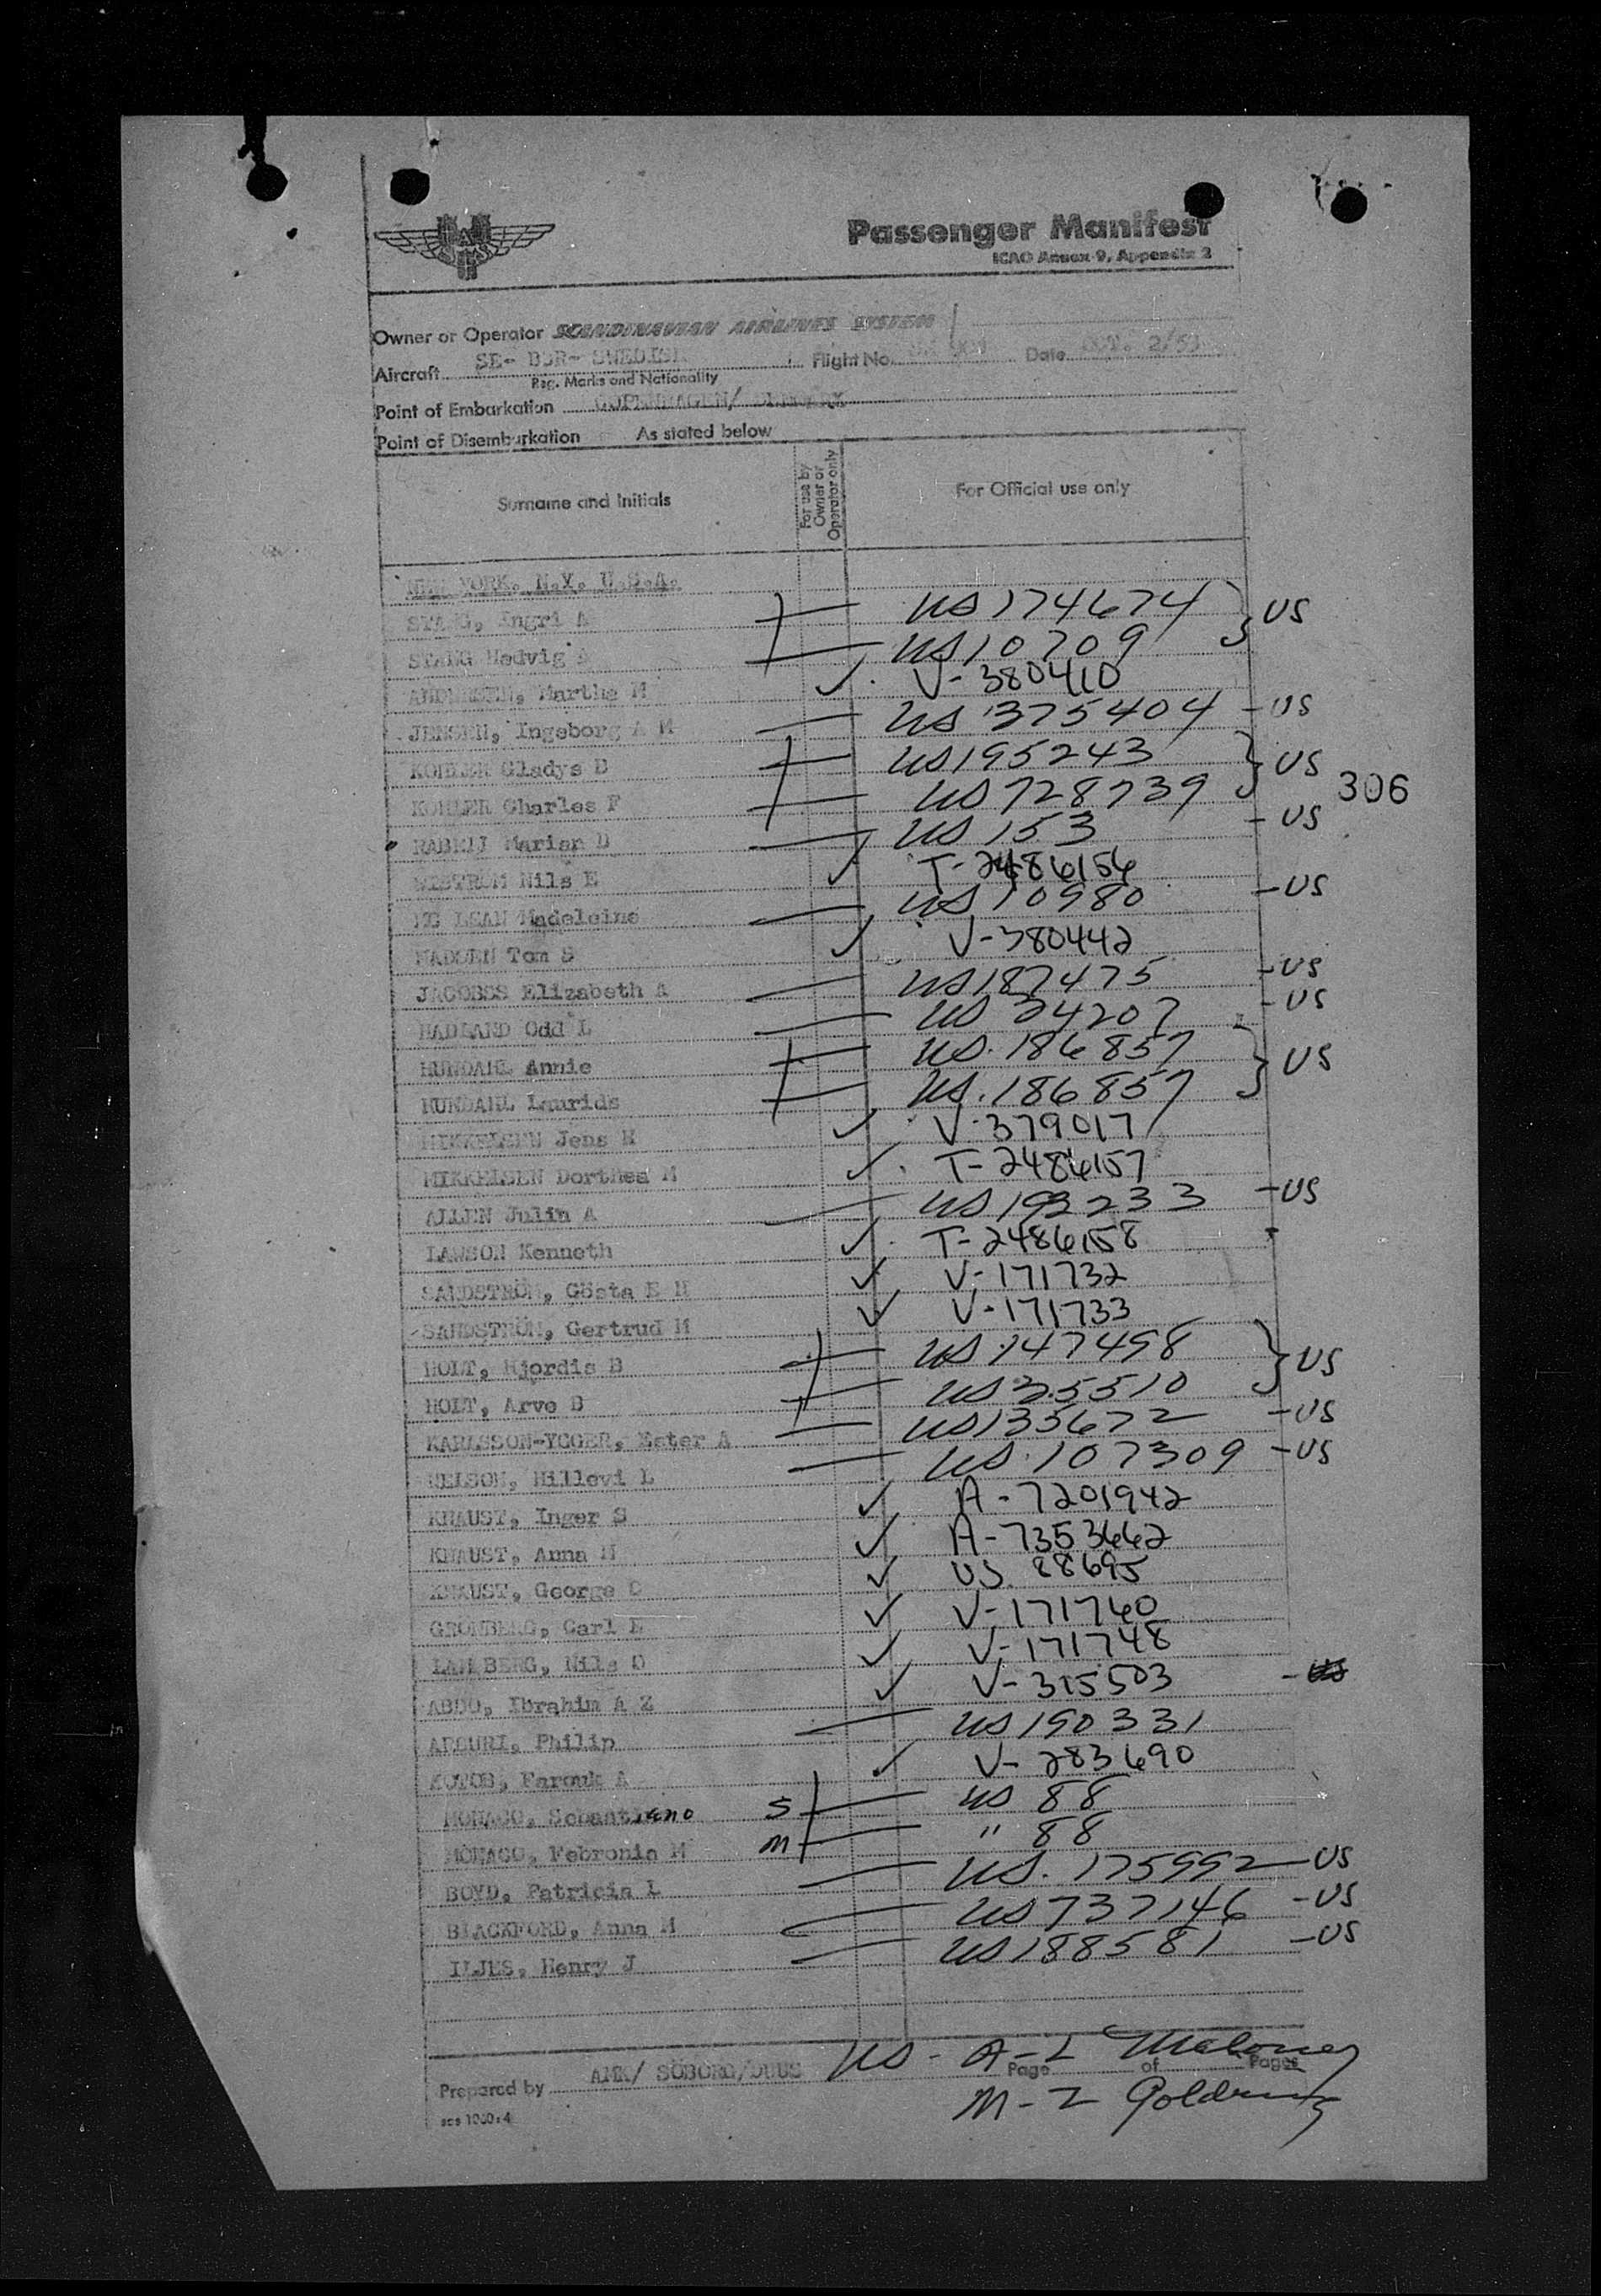 Passenger Manifest
ICAO Annex 9, Appendix 2
Owner or Operator SCANDINAVIAN AIRLINES SYSTEM
Aircraft SE- BSR- SWEDISH Flight No. Date OCT. 2/53
Reg. Marks and Nationality
Point of Embarkation COPENHAGEN/ DENMARK
Point of Disembarkation As stated below
Surname and Initials For use by Owner or Operator only For Official use only
NEW YORK, N.Y. U.S.A.
STANG, Ingri A US 174674 } US
STANG Hedvig A US 10709
ANDERSEN, Martha M ✓ V-380410
JENSEN, Ingeborg A M US 375404 - US
KOHLER Gladys B US 195243 } US
KOHLER Charles F US 728739 306
Marian D US 153 - US
Nils E ✓ T-2486156
MC LEAN Madeleine US 10980 - US
MADSEN Tom S ✓ V-380442
JACOBSS Elizabeth A US 187475 - US
HADLAND Odd L US 24207 - US
HUNDAHL Annie US. 186857 } US
HUNDAHL Laurids US. 186857
MIKKELSEN Jens H ✓ V-379017
MIKKELSEN Dorthea M ✓ T-2486157
ALLEN Julin A US 193233 - US
LAWSON Kenneth ✓ T-2486158
SANDSTRÖM, Gösta E H ✓ V-171732
SANDSTRÖM, Gertrud M ✓ V-171733
HOLT, Hjordis B US 147498 } US
HOLT, Arve B US 35510
KARLSSON-YGGER, Ester A US 135672 - US
NELSON, Millevi L US 107309 - US
KNAUST, Inger S ✓ A-7201942
KNAUST, Anna H ✓ A-7353662
KNAUST, George O ✓ US 88695
GRONBERG, Carl E ✓ V-171760
LAMBERG, Nils O ✓ V-171748
ABDO, Ibrahim A Z ✓ V-315503
Philip US 190331
KOTOB, Farouk A ✓ V-283690
MONACO, Sebastiano S US 88
MONACO, Febronia M M " 88
BOYD, Patricia L US. 175992 - US
BLACKFORD, Anna M US 737146 - US
ILJES, Henry J US 188581 - US
Prepared by AMK/ SOBORG/DUUS Page of Pages
US - A-L Maloney
M-Z Goldring
sas 1060:4